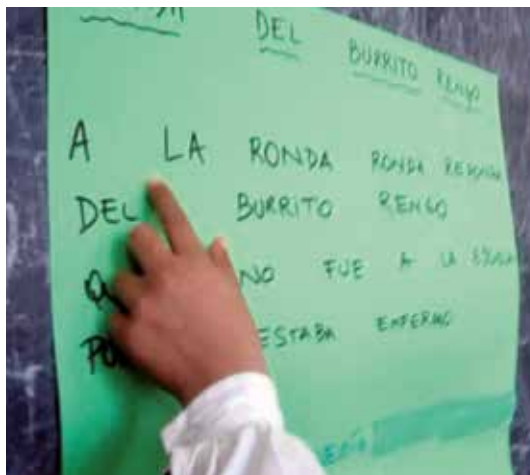 DEL BURRITO RENGO
A LA RONDA RONDA REDONDA
DEL BURRITO RENGO
NO FUE A LA ESCUELA
ESTABA ENFERMO